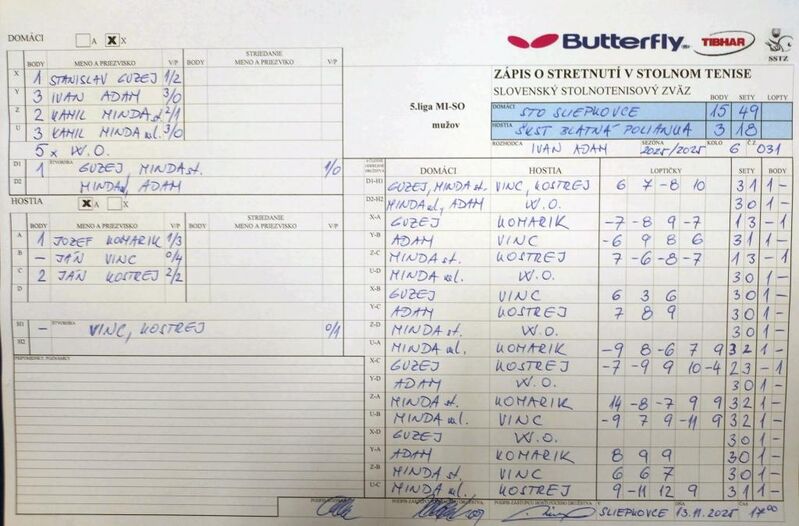 DOMÁCI A X X
Butterfly TIBHAR SSTZ
BODY MENO A PRIEZVISKO V/P BODY STRIEDANIE MENO A PRIEZVISKO V/P
X 1 STANISLAV GUZEJ 1/2
Y 3 IVAN ADAM 3/0
Z 2 KAMIL MINDA st. 2/1
U 3 KAMIL MINDA ml. 3/0
5x W.O.
D1 ŠTVORHRA 1 GUZEJ, MINDA st. 1/0
D2 MINDA ml, ADAM
HOSTIA X A X
BODY MENO A PRIEZVISKO V/P BODY STRIEDANIE MENO A PRIEZVISKO V/P
A 1 JOZEF KOMARIK 1/3
B – JÁN VINC 0/4
C 2 JÁN KOSTREJ 2/2
D
H1 ŠTVORHRA – VINC, KOSTREJ 0/1
H2
PRIPOMIENKY, POZNÁMKY
ZÁPIS O STRETNUTÍ V STOLNOM TENISE
SLOVENSKÝ STOLNOTENISOVÝ ZVÄZ
5.liga MI-SO
mužov
BODY SETY LOPTY
DOMÁCI STO SLIEPKOVCE 15 49
HOSTIA ŠKST BLATNÁ POLIANKA 3 18
ROZHODCA IVAN ADAM SEZÓNA 2025/2025 KOLO 6 Č.Z. 031
DOMÁCI HOSTIA LOPTIČKY SETY BODY
D1-H1 GUZEJ, MINDA st. VINC, KOSTREJ 6 7 -8 10 3 1 1 -
D2-H2 MINDA ml, ADAM W.O. 3 0 1 -
X-A GUZEJ KOMARIK -7 -8 9 -7 1 3 - 1
Y-B ADAM VINC -6 9 8 6 3 1 1 -
Z-C MINDA st. KOSTREJ 7 -6 -8 -7 1 3 - 1
U-D MINDA ml. W.O. 3 0 1 -
X-B GUZEJ VINC 6 3 6 3 0 1 -
Y-C ADAM KOSTREJ 7 8 9 3 0 1 -
Z-D MINDA st. W.O. 3 0 1 -
U-A MINDA ml. KOMARIK -9 8 -6 7 9 3 2 1 -
X-C GUZEJ KOSTREJ -7 -9 9 10 -4 2 3 - 1
Y-D ADAM W.O. 3 0 1 -
Z-A MINDA st. KOMARIK 14 -8 -7 9 9 3 2 1 -
U-B MINDA ml. VINC -9 7 9 -11 9 3 2 1 -
X-D GUZEJ W.O. 3 0 1 -
Y-A ADAM KOMARIK 8 9 9 3 0 1 -
Z-B MINDA st. VINC 6 6 7 3 0 1 -
U-C MINDA ml. KOSTREJ 9 -11 12 9 3 1 1 -
V SLIEPKOVCE DŇA 13.11.2025 ČAS 17 00